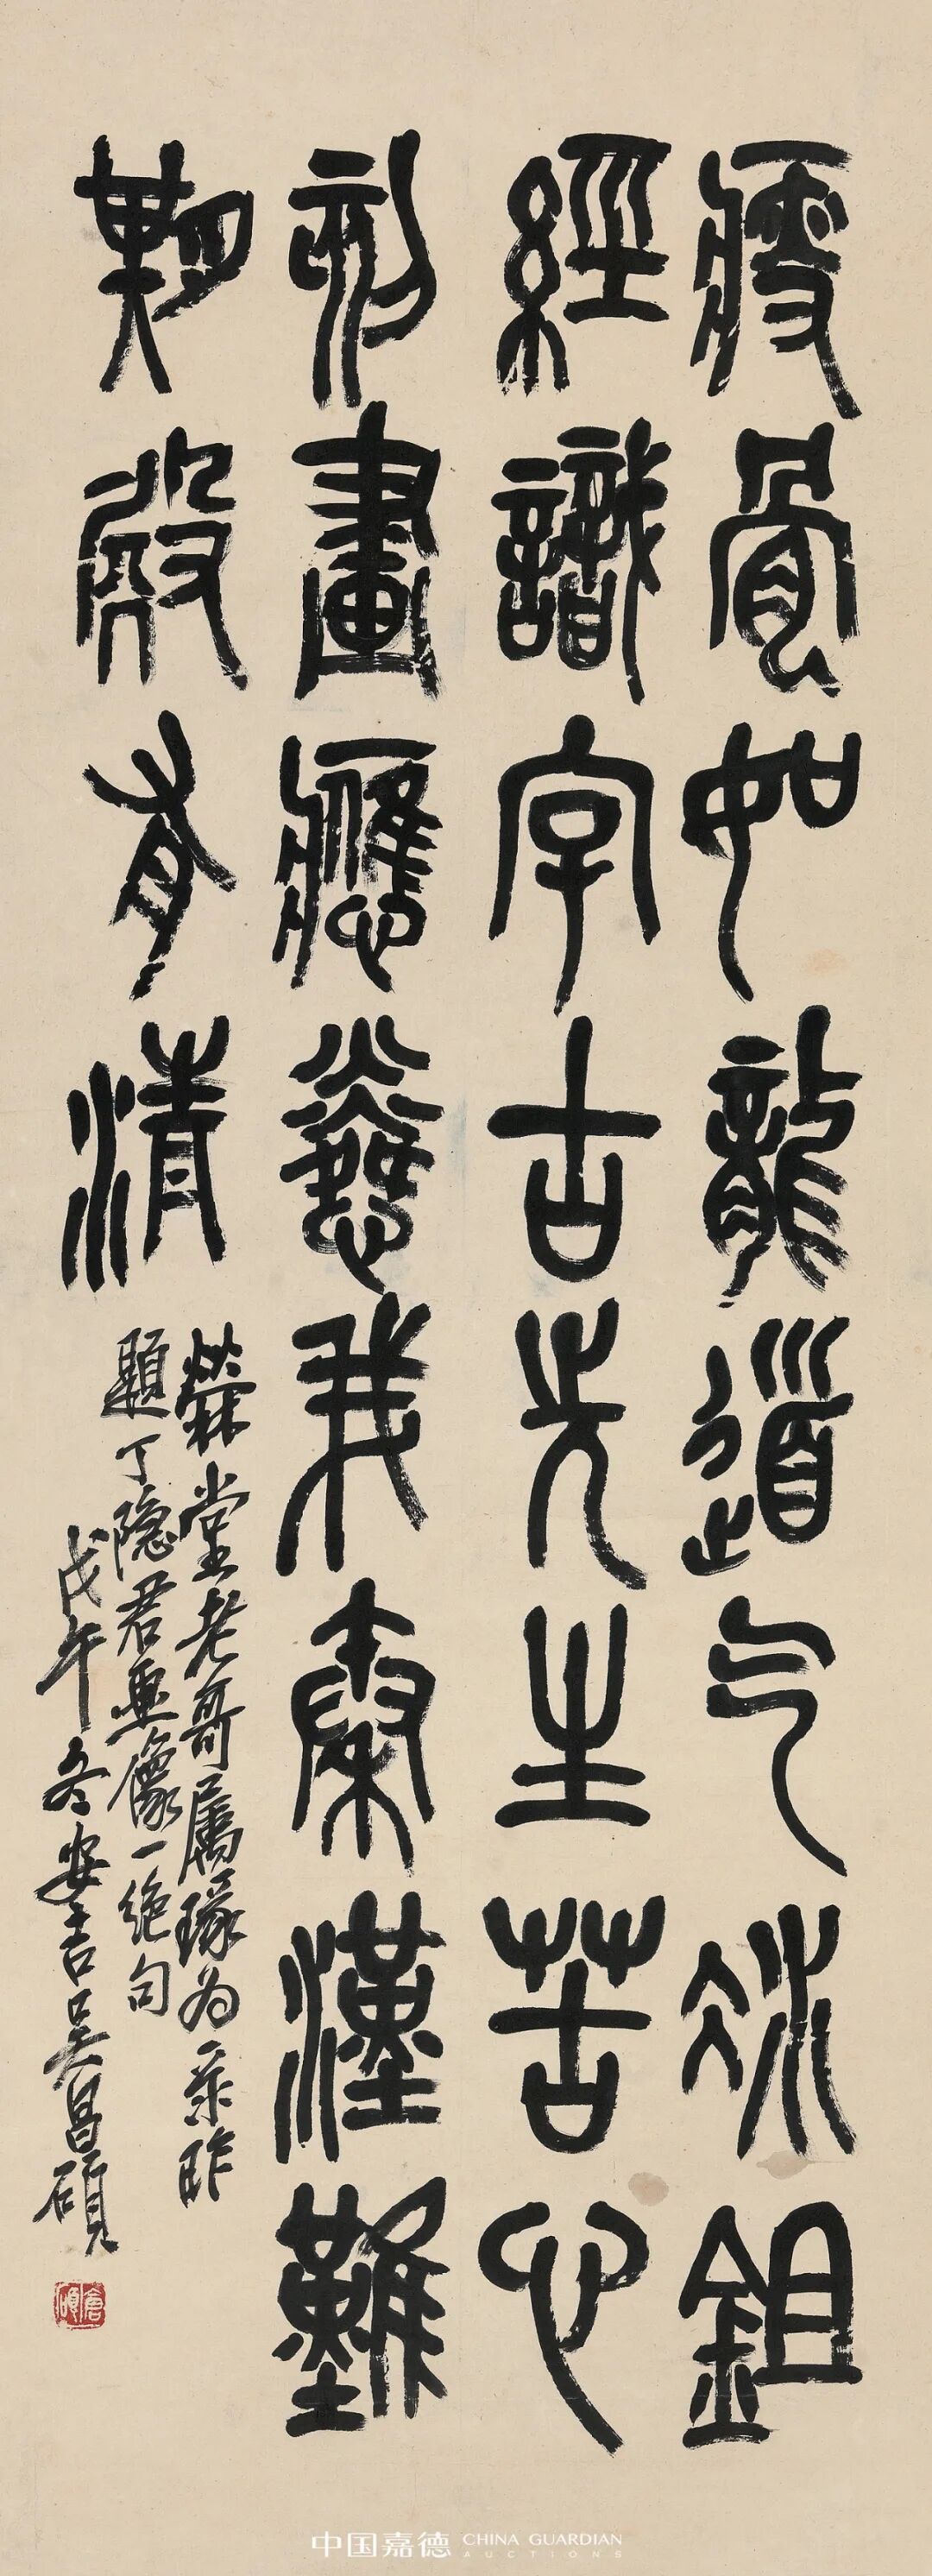 瘦骨如龍道气冰鉏
經識字古先生苦心
刻畫應我秦漢難
勤殷有清
堂老哥屬瑑为录昨
題丁隱君畫像一絕句
戊午冬安吉吳昌碩
倉碩
中国嘉德 CHINA GUARDIAN
AUCTIONS